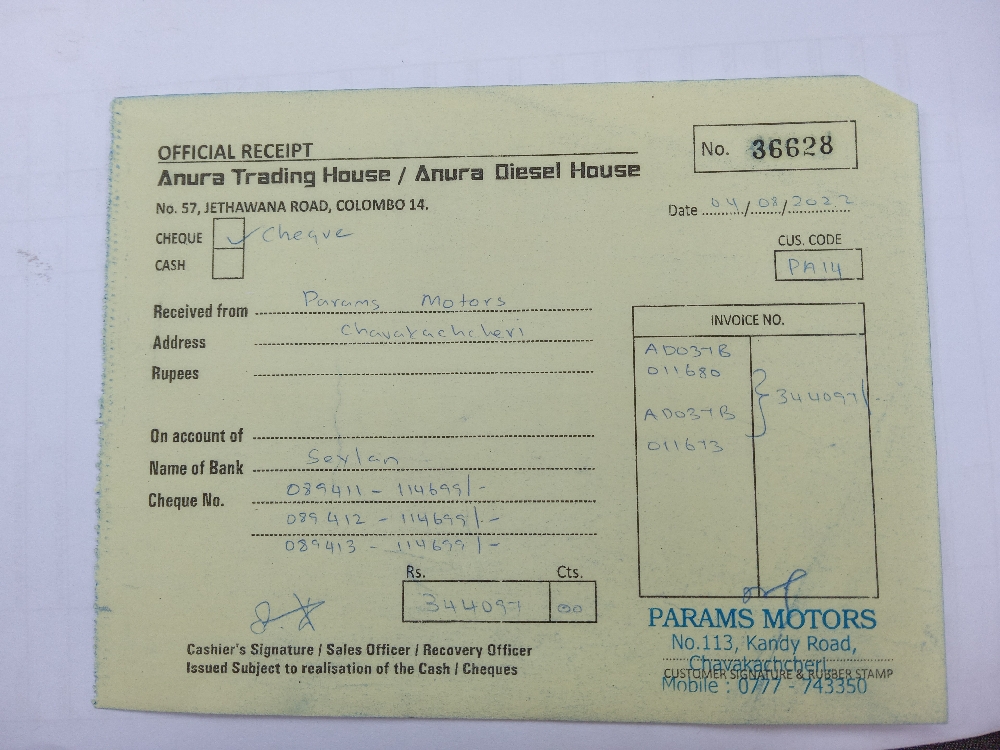 OFFICIAL RECEIPT
No. 36628
Anura Trading House / Anura Diesel House
No. 57, JETHAWANA ROAD, COLOMBO 14.
Date 04/08/2022
CHEQUE ✓ Cheque
CASH
CUS. CODE
PA14
Received from Params Motors
Address Chavakachcheri
Rupees
INVOICE NO.
AD037B
011680
344097/-
AD037B
011673
On account of
Name of Bank Seylan
Cheque No. 089411 - 114699/-
089412 - 114699/-
089413 - 114699/-
Rs. Cts.
344097 00
Cashier's Signature / Sales Officer / Recovery Officer
Issued Subject to realisation of the Cash / Cheques
PARAMS MOTORS
No.113, Kandy Road,
Chavakachcheri.
CUSTOMER SIGNATURE & RUBBER STAMP
Mobile : 0777 - 743350